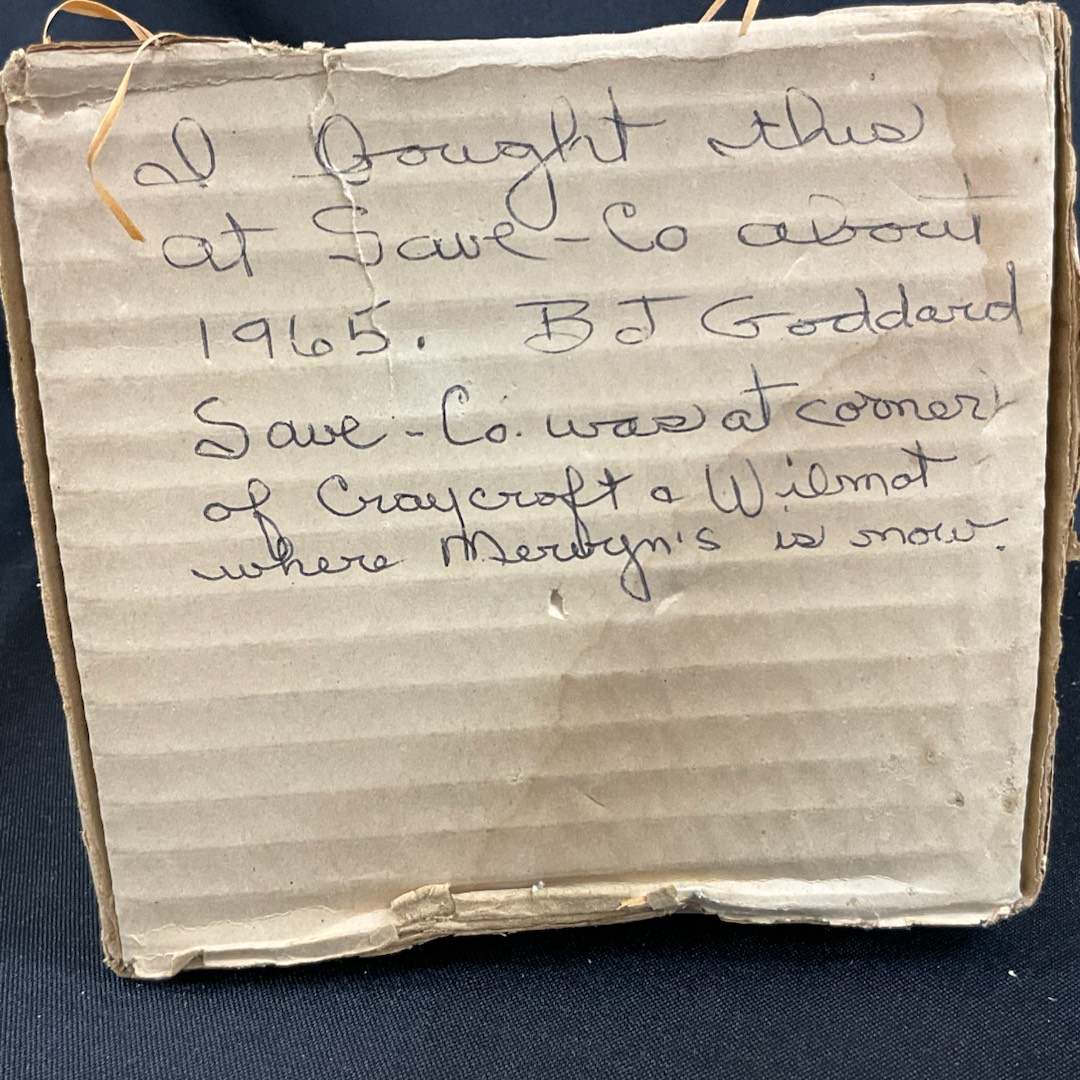 I bought this
at Save-Co about
1965. BJ Goddard
Save-Co. was at corner
of Craycroft & Wilmot
where Mervyn's is now.